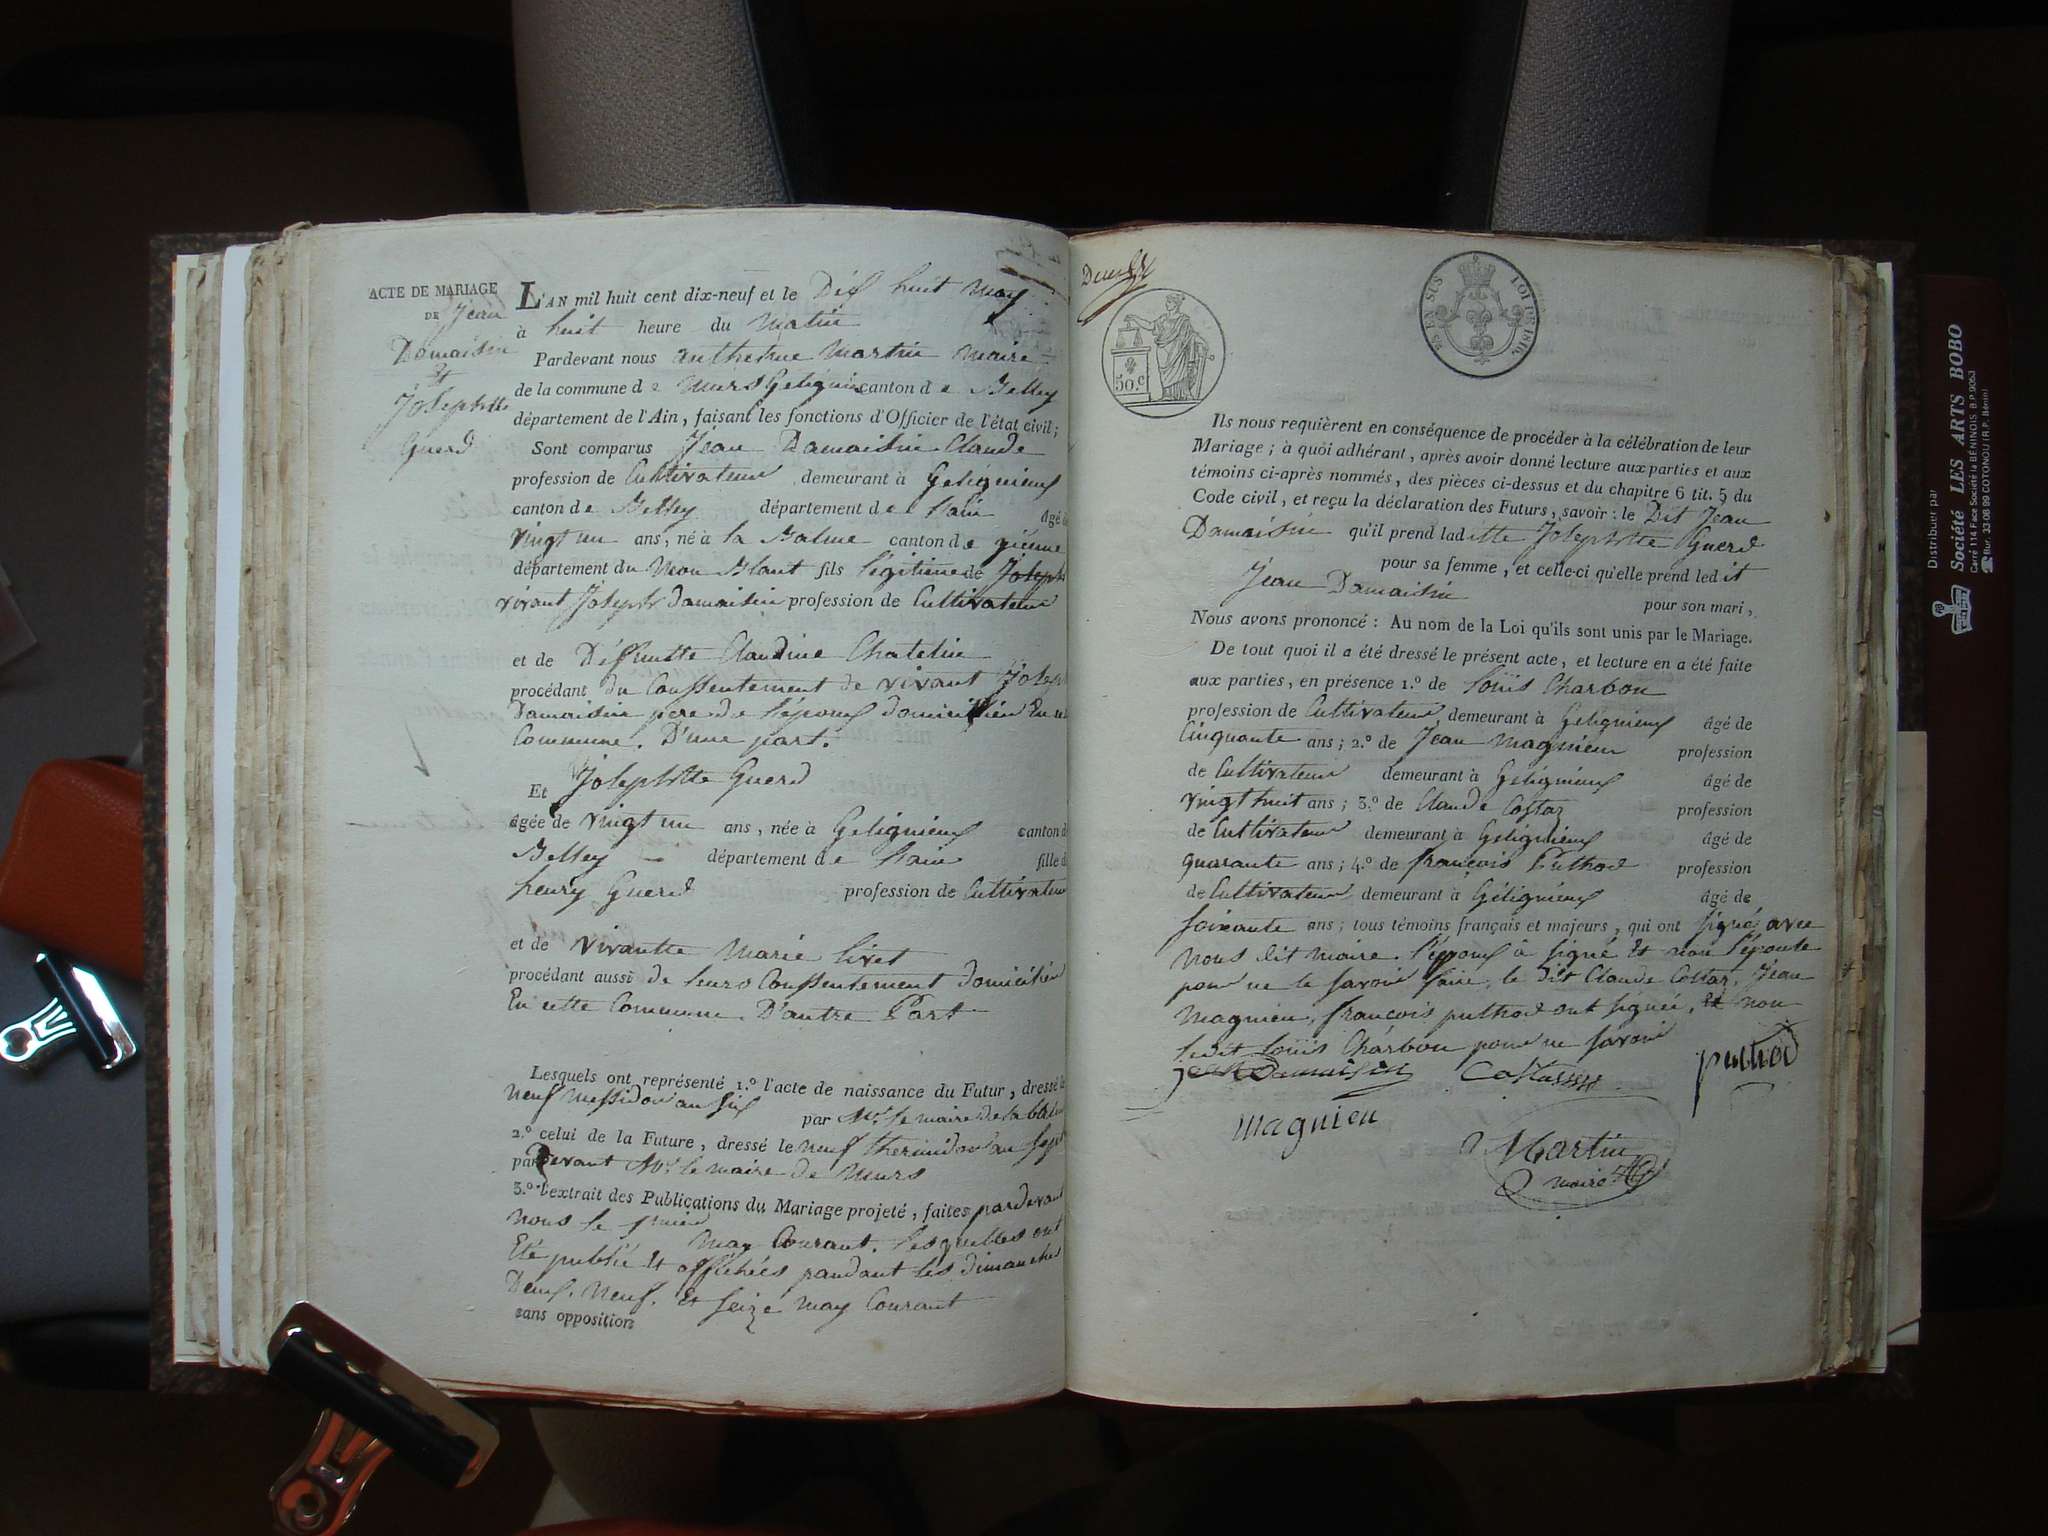 ACTE DE MARIAGE
DE Jean
Domaisin
Et
Josephtte
Guerd
L'AN mil huit cent dix-neuf et le Dix huit may
à huit heure du Matin
Pardevant nous anthelme Martin Maire
de la commune de Murs Gelignieux canton de Belley
département de l'Ain, faisant les fonctions d'Officier de l'état civil;
Sont comparus Jean Damaisin Claude
profession de Cultivateur demeurant à Gelignieux
canton de Belley département de l'ain âgé de
vingt un ans, né à la Balme canton de yenne
département du Mon Blant fils légitime de Joseph
vivant Joseph damaisin profession de Cultivateur
et de Deffuntte Claudine Chatelin
procédant du Conssentement de vivant Joseph
Damaisin pere de l'époux domicillién En
Commune. D'une part.
Et Josephtte Guerd
âgée de vingt un ans, née à Gelignieux canton d
Belley département de l'ain fille d
henry Guerd profession de Cultivateur
et de vivantte Marie livet
procédant aussi de leurs Conssentement domicilién
En cette Commune. D'autre Part
Lesquels ont représenté 1.º l'acte de naissance du Futur, dressé le
Neuf Messidor an Six par Mr. le maire de la balme
2.º celui de la Future, dressé le neuf thermidor an Sept
par Devant Mr. le maire de Murs
3.º l'extrait des Publications du Mariage projeté, faites pardevant
nous le
may Courant. lesquelles ont
Eté publié Et affichées pandant les dimanches
Deux. Neuf. Et Seize may Courant
sans opposition
50.c
25 EN SUS LOI DE 1816
Ils nous requièrent en conséquence de procéder à la célébration de leur
Mariage; à quoi adhérant, après avoir donné lecture aux parties et aux
témoins ci-après nommés, des pièces ci-dessus et du chapitre 6 tit. 5 du
Code civil, et reçu la déclaration des Futurs, savoir: le Dit Jean
Damaisin qu'il prend laditte Josephtte Guerd
pour sa femme, et celle-ci qu'elle prend ledit
Jean Damaisin pour son mari,
Nous avons prononcé: Au nom de la Loi qu'ils sont unis par le Mariage.
De tout quoi il a été dressé le présent acte, et lecture en a été faite
aux parties, en présence 1.º de loüis Charbon
profession de Cultivateur demeurant à Gelignieux âgé de
Cinquante ans; 2.º de Jean magnieu profession
de Cultivateur demeurant à Gelignieux âgé de
vingt huit ans; 3.º de Claude Costaz profession
de Cultivateur demeurant à Gelignieux âgé de
quarante ans; 4.º de françois Puthod profession
de Cultivateur demeurant à Gélignieux âgé de
soixante ans; tous témoins français et majeurs, qui ont signé avec
Nous dit maire. l'époux à signé Et non l'épouse
pour ne le savoir faire, le dit Claude Costaz, Jean
magnieu, françois puthod ont signée, Et non
ledit loüis Charbon pour ne savoir
Jean Damaisin Costaz puthod
magnieu
Martin
maire
Distribuer par
Société LES ARTS BOBO
Carré 114 Face Société la BÉNINOIS B.P. 9053
Bur. 33-08-99 COTONOU (R.P. Bénin)